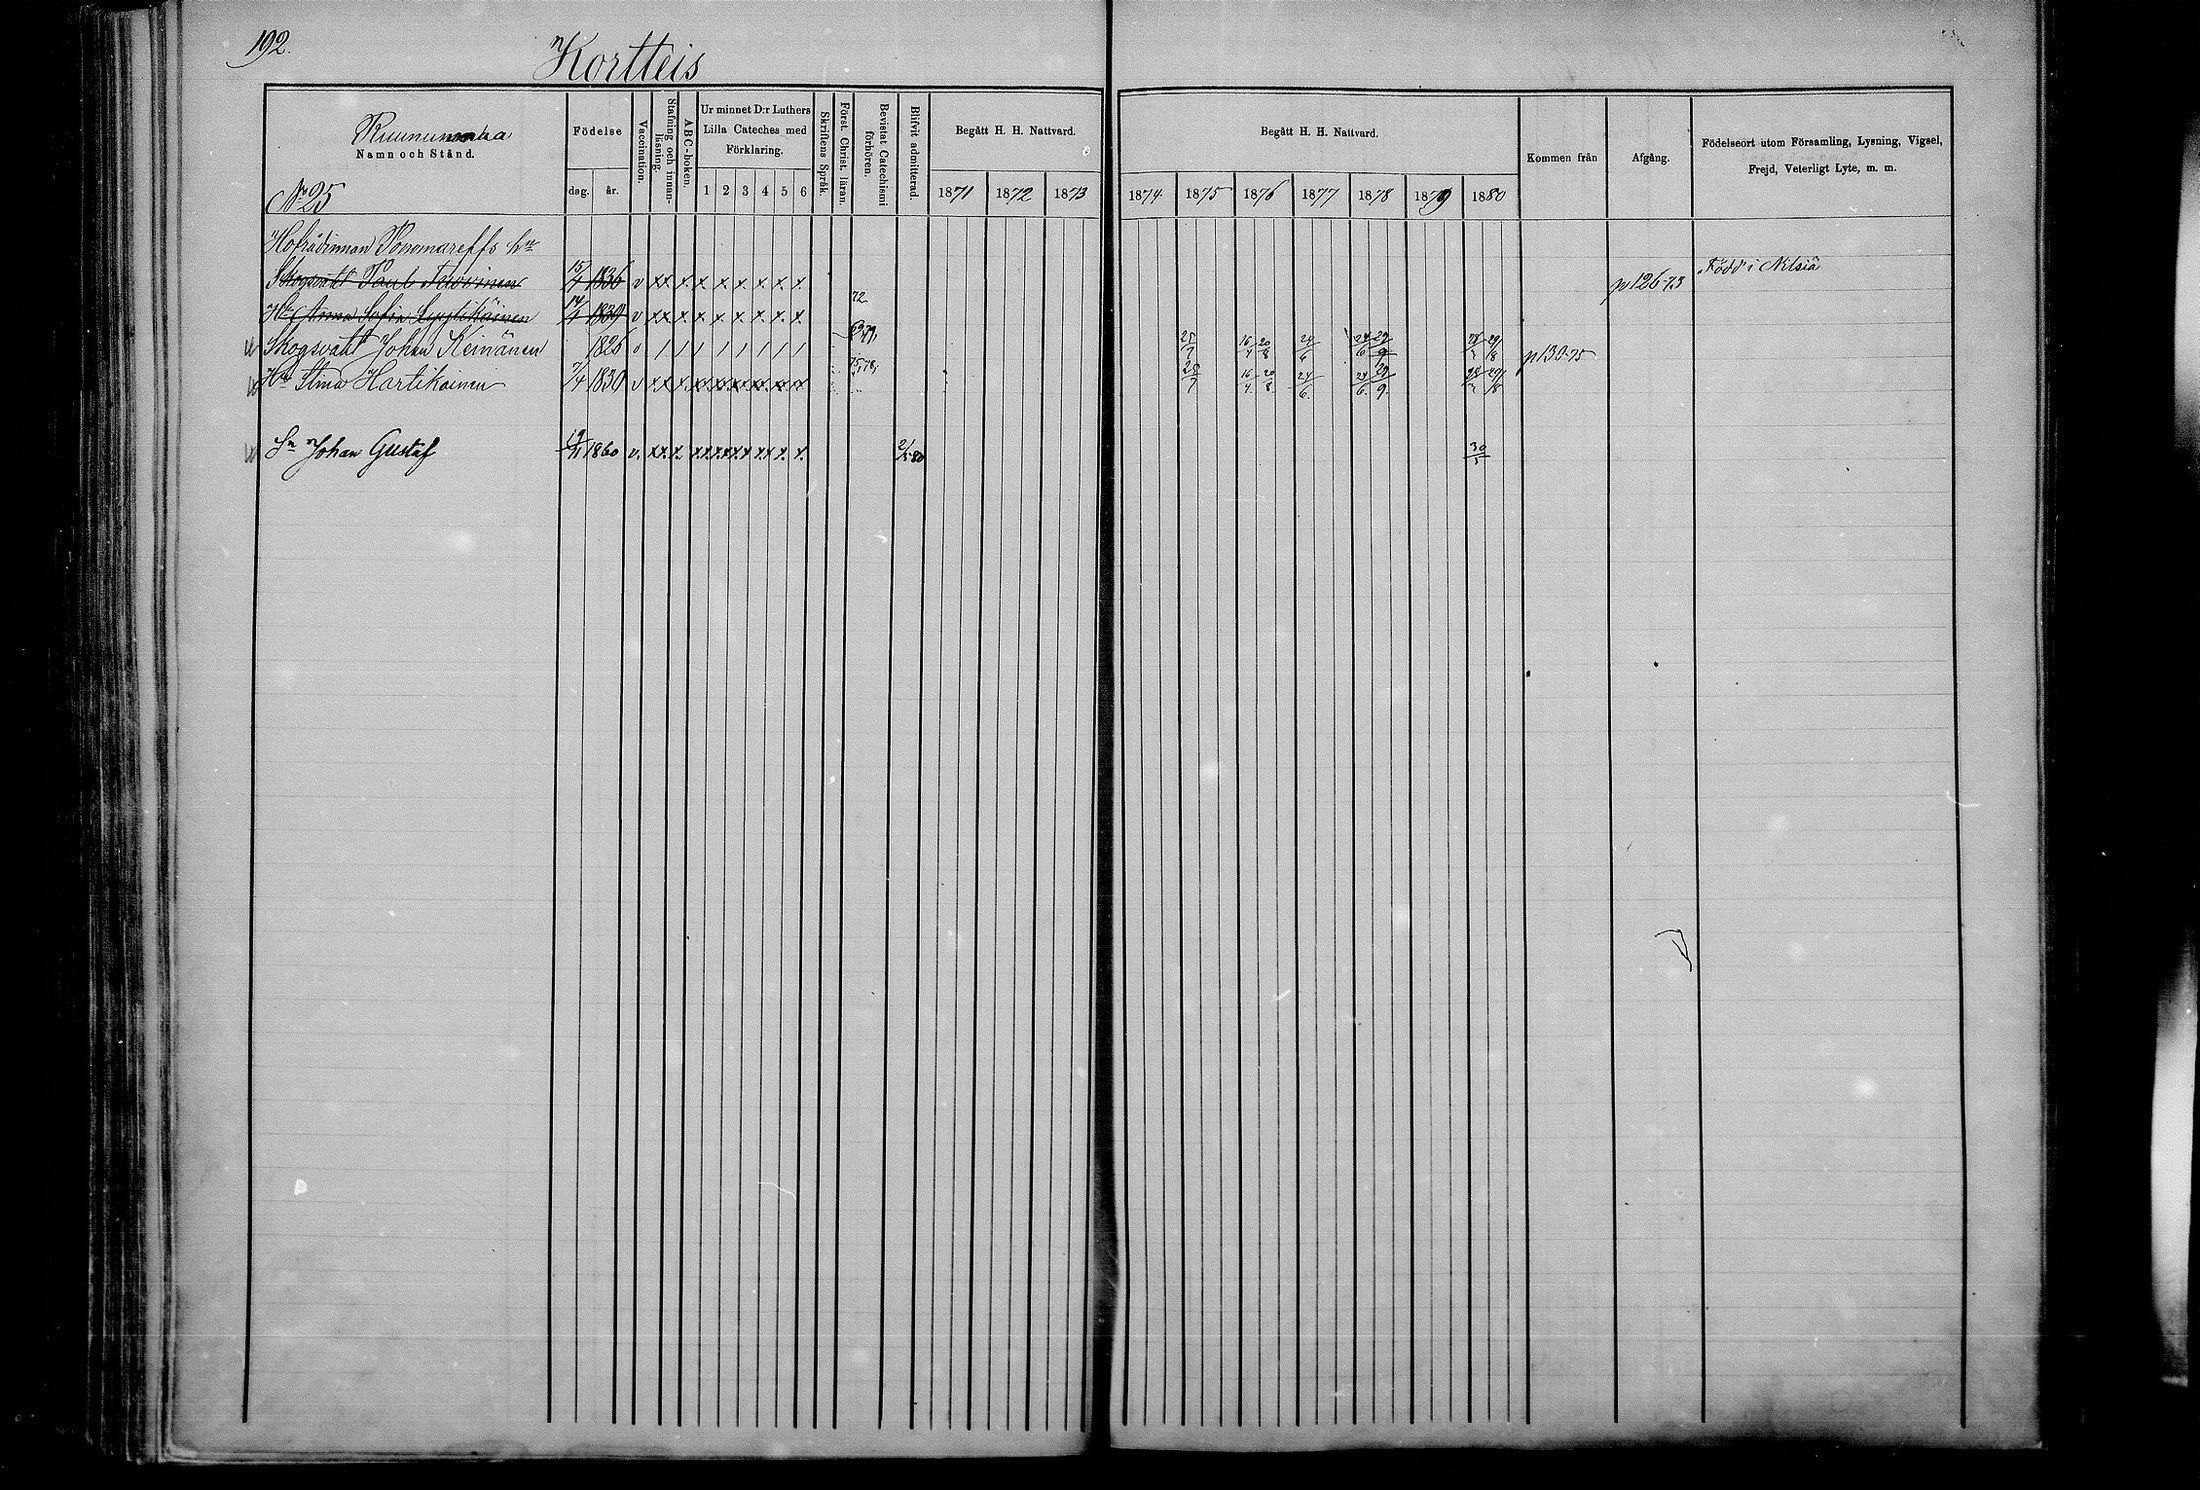 192.
Kortteis
Ruunumaha
Namn och Stånd.
Födelse
dag. år.
Vaccination.
Stafning och innanläsning.
A B C-boken.
Ur minnet D:r Luthers Lilla Cateches med Förklaring.
1 2 3 4 5 6
Skriftens Språk.
Först. Christ. läran.
Bevistat Catechismi förhören.
Blifvit admitterad.
Begått H. H. Nattvard.
1871 1872 1873
Begått H. H. Nattvard.
1874 1875 1876 1877 1878 1879 1880
Kommen från
Afgång.
Födelseort utom Församling, Lysning, Vigsel, Frejd, Veterligt Lyte, m. m.
No 25
Hofrådinnan Ponomareffs
Skogsvakt Paul 15/4 1836 v x x x x x x x x x p 126-73 Född i Nilsiä
Hu Anna Sofia Lyytikäinen 14/4 1839 v x x x x x x x x x 72
Skogsvakt Johan Keinänen 1826 25/7 16/4 20/8 24/6 p 130-75
Hu Stina Hartikainen 7/4 1830 v 75, 78, 16/4 20/8 24/6 24/6 29/9
Sn Johan Gustaf 1860 v.